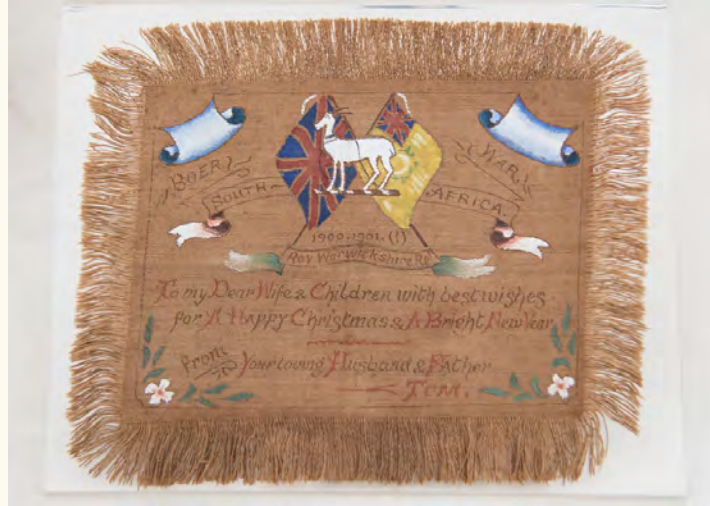 BOER WAR
SOUTH AFRICA
1900-1901. (!)
Roy Warwickshire Rg
To my Dear Wife & Children with best wishes
for A Happy Christmas & A Bright New Year
From Your loving Husband & Father
Tom.